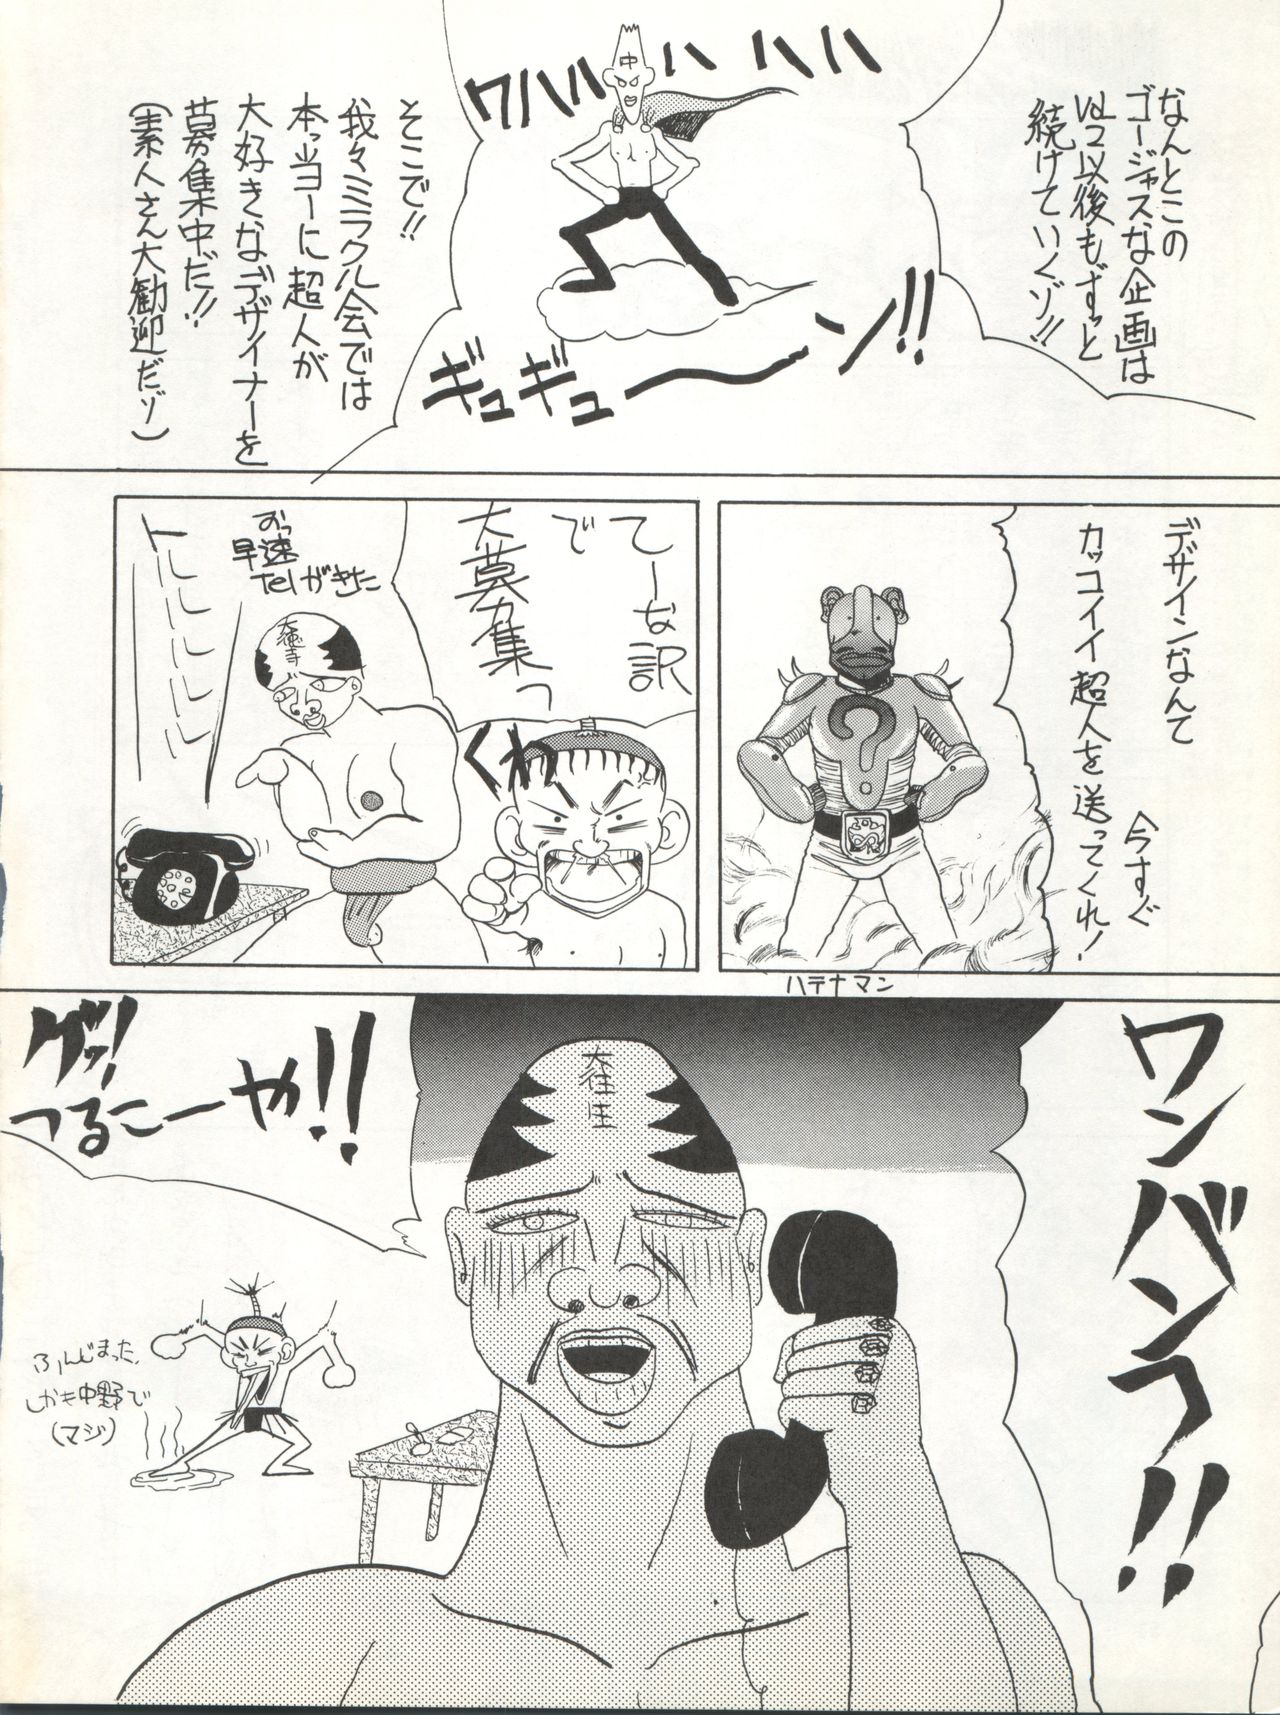 なんとこの
ゴージャスな企画は
Vol2以後もずっと
続けていくゾ!!
ワハハハハハハ
中
ギュギューーン!!
そこで!!
我々ミラクル会では
本っ当ヨーに超人が
大好きなデザイナーを
募集中だ!!
(素人さん大勧迎だゾ)
デザインなんて
カッコイイ超人を送ってくれ!
今すぐ
?
ハテナマン
てーな訳
で
大募集っ
くわ
おっ
早速
Telがきた
トルルルルル
ワンバンつ!!
グッ!
つるこーや!!
大往生
ふんじまった、
しかも中野で
(マジ)